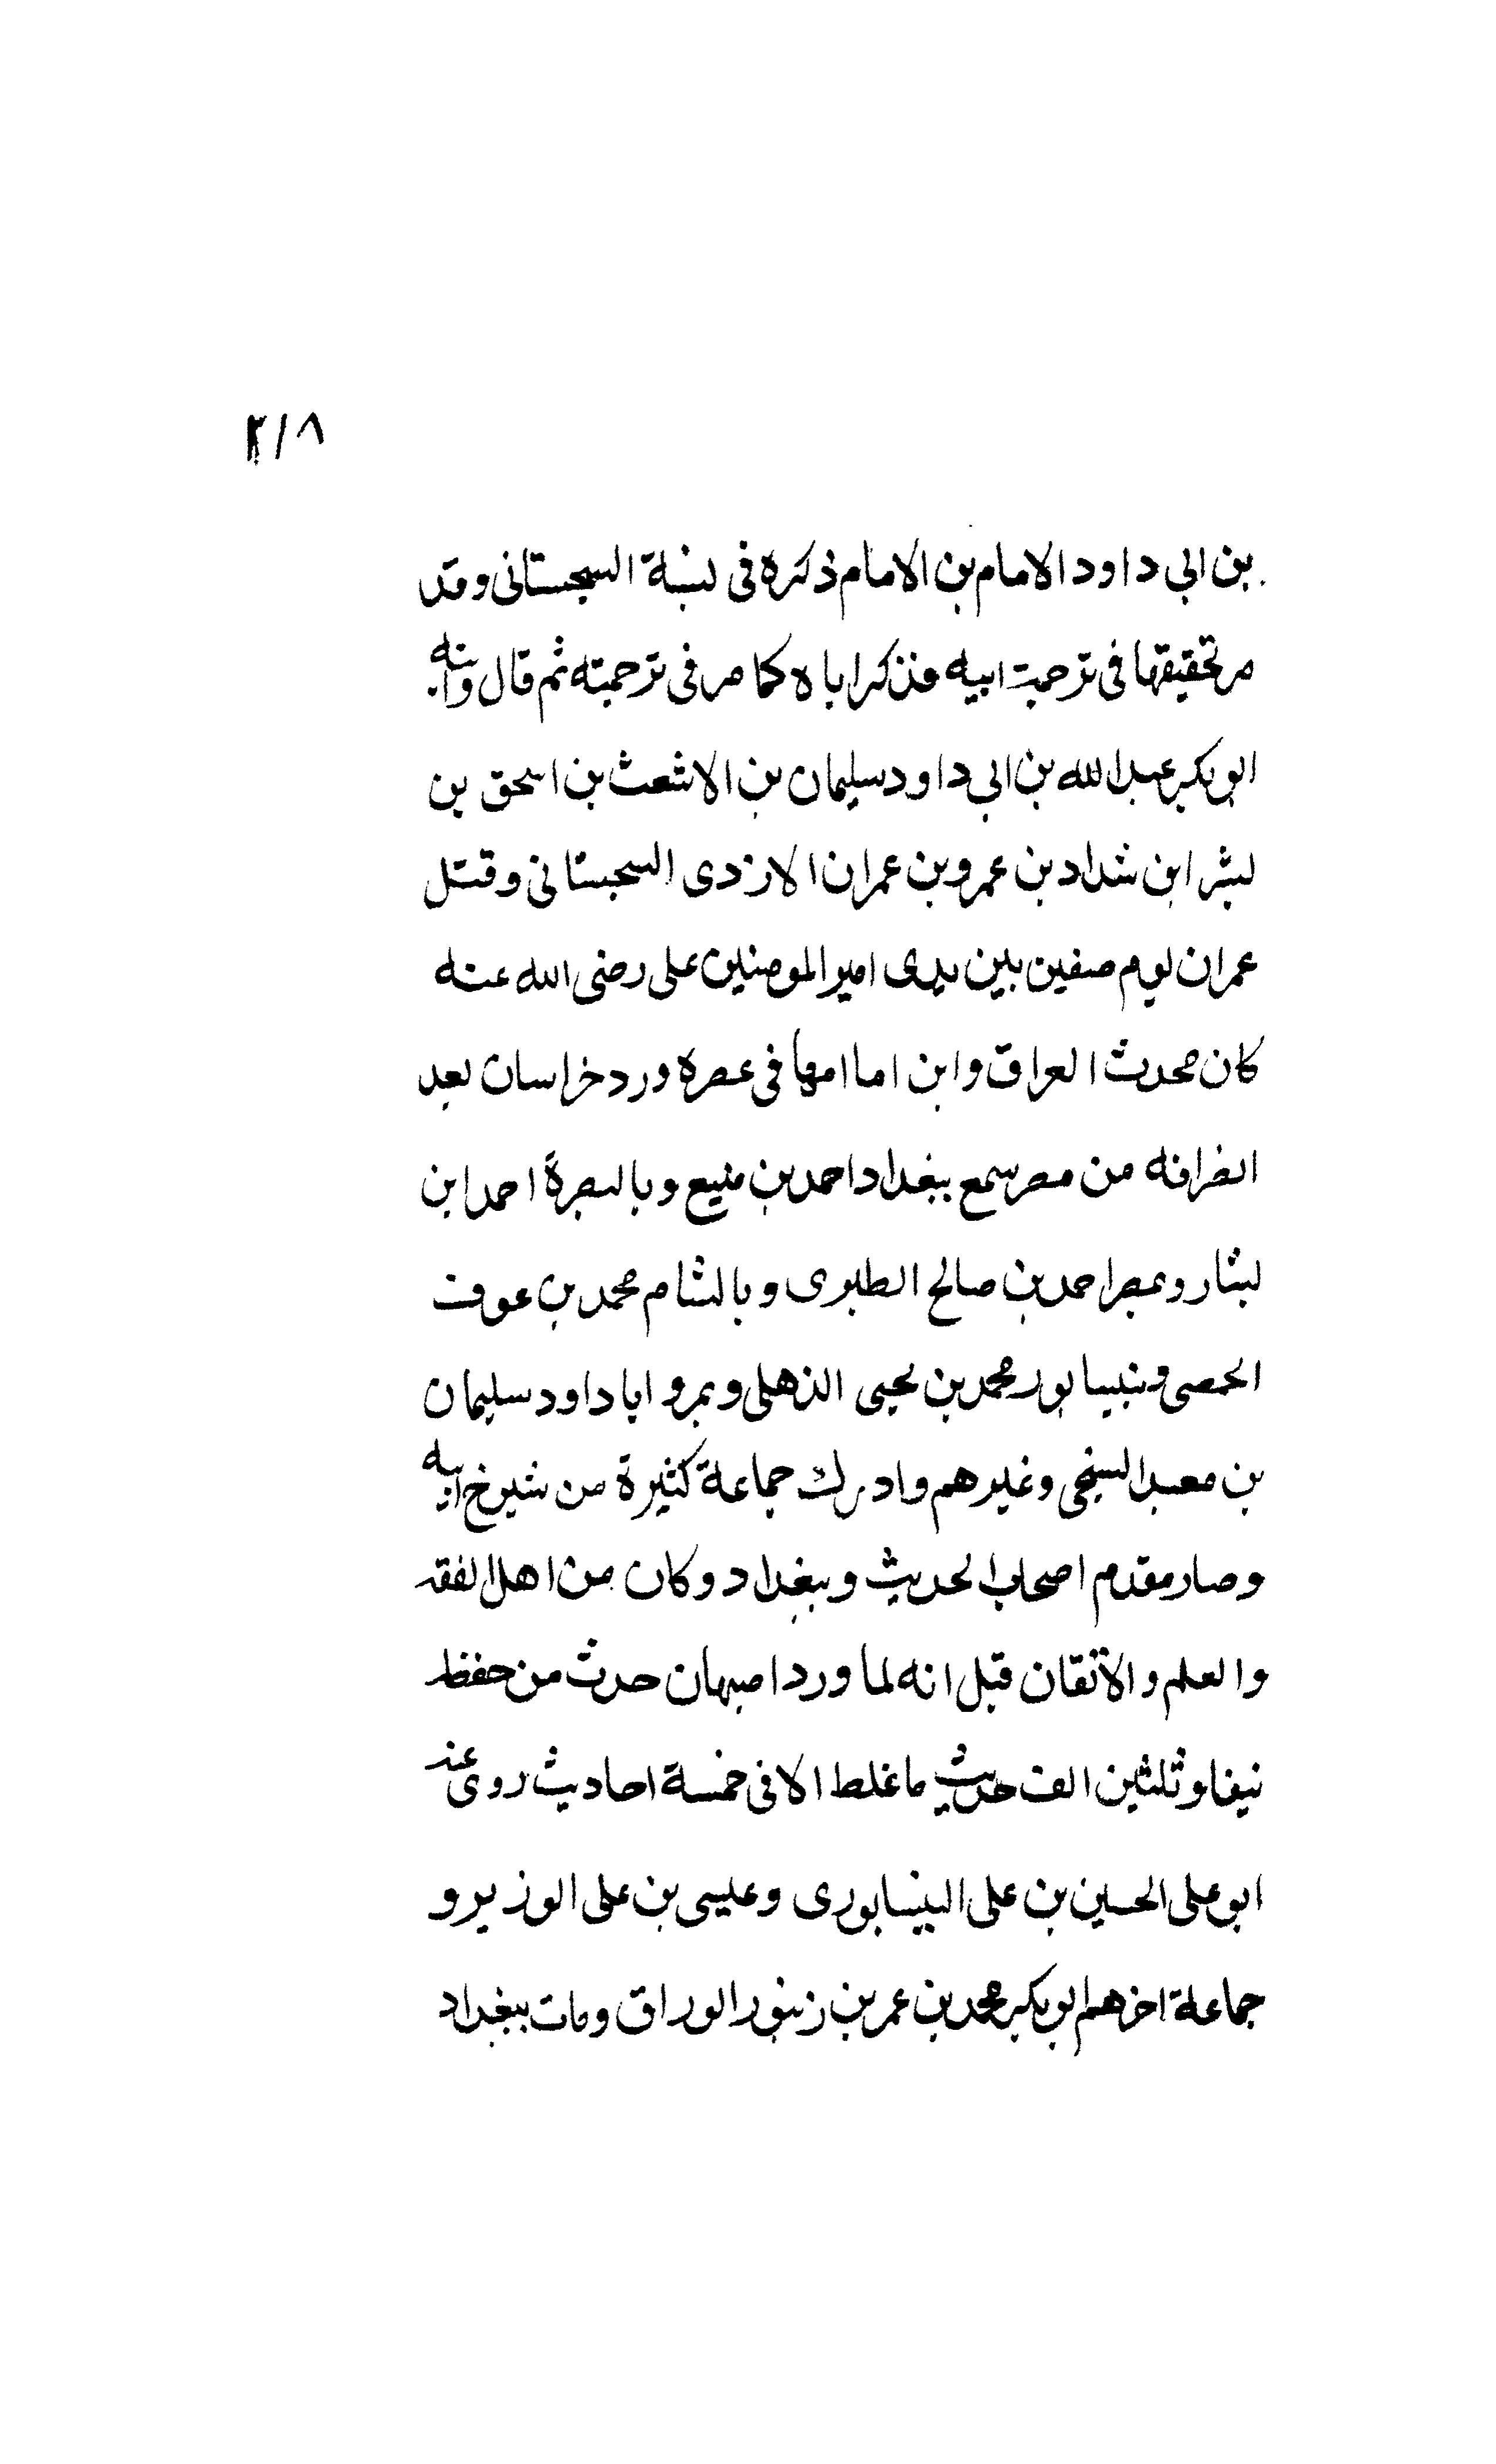 ٣١٨
بن ابى داود الامام بن الامام ذكره فى نسبة السجستانى وقد
مر تحقيقها فى ترجمة ابيه فذكر اباه كما مر فى ترجمته ثم قال وابنه
ابو بكر عبد الله بن ابى داود سليمان بن الاشعث بن اسحق بن
بشر ابن شداد بن عمرو بن عمران الازدى السجستانى وقتل
عمران يوم صفين بين يدى امير المومنين على رضى الله عنه
كان محدث العراق وابن امامها فى عصره ورد خراسان بعد
انصرافه من مصر سمع ببغداد احمد بن منيع وبالبصرة احمد ابن
بشار وبمصر احمد بن صالح الطبرى وبالشام محمد بن عوف
الحمصى وبنيسابور محمد بن يحيى الذهلى وبمرو ابا داود سليمان
بن معبد السنجى وغيرهم وادرك جماعة كثيرة من شيوخ ابيه
وصار مقدم اصحاب الحديث وببغداد وكان من اهل الفقه
والعلم والاتقان قيل انه لما ورد اصبهان حدث من حفظه
نيفا وثلثين الف حديث ما غلط الا فى خمسة احاديث روى عنه
ابو على الحسين بن على النيسابورى وعيسى بن على الوزير و
جماعة اخرهم ابو بكر محمد بن عمر بن زنبور الوراق ومات ببغداد